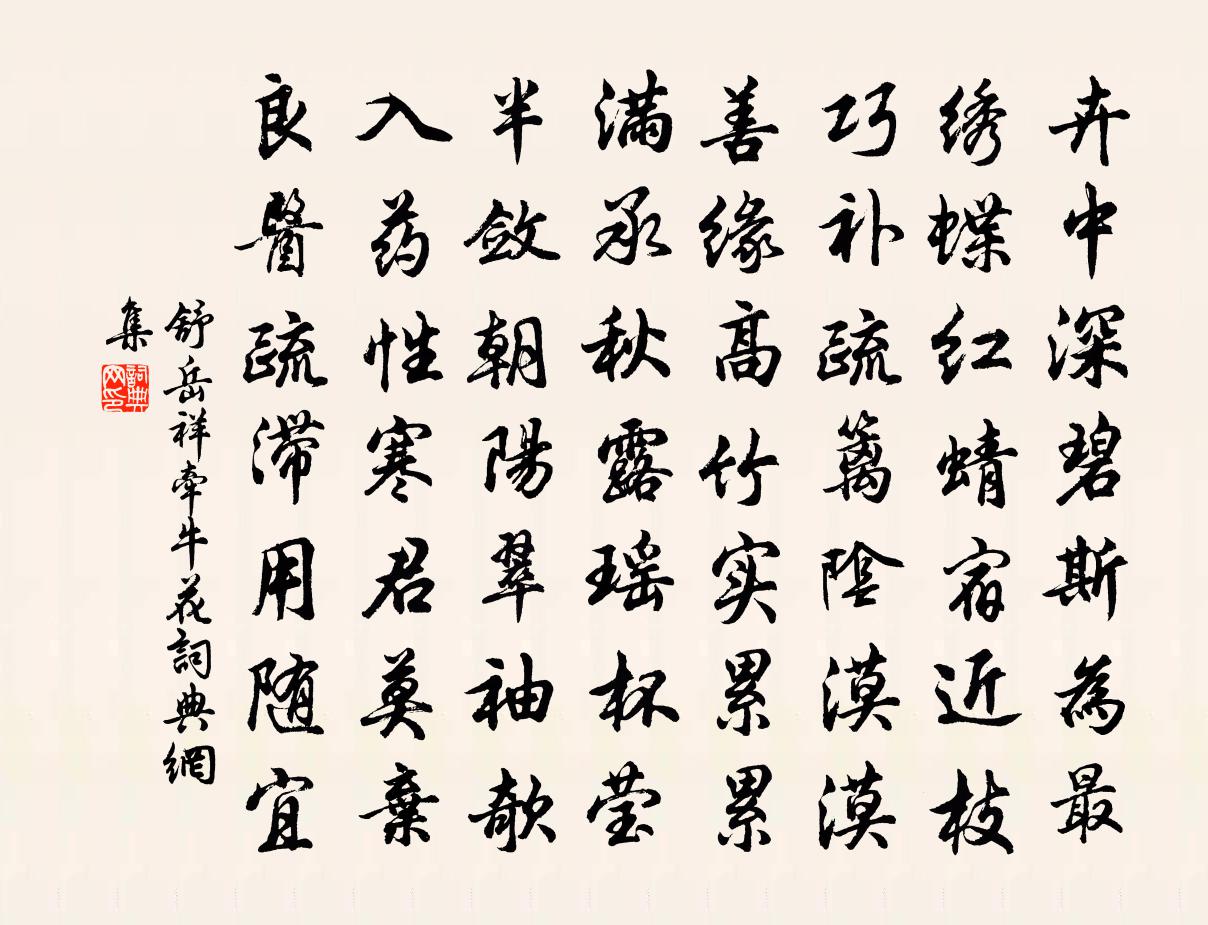 卉中深碧斯為最
绣蝶红蜻宿近枝
巧补疏篱陰漠漠
善缘高竹实累累
满承秋露瑶杯莹
半斂朝陽翠袖欹
入药性寒君莫棄
良醫疏滞用随宜
舒岳祥牽牛花詞典網
集
詞典
网印